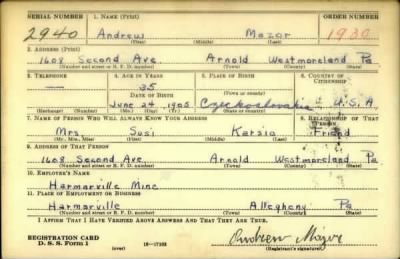 SERIAL NUMBER 1. NAME (Print) ORDER NUMBER
2940 Andrew Mazor 1930
(First) (Middle) (Last)
2. ADDRESS (Print)
1608 Second Ave Arnold Westmoreland Pa
(Number and street or R. F. D. number) (Town) (County) (State)
3. TELEPHONE 4. AGE IN YEARS 5. PLACE OF BIRTH 6. COUNTRY OF CITIZENSHIP
— 35
DATE OF BIRTH (Town or county)
June 24, 1905 Czechoslovakia U.S.A.
(Exchange) (Number) (Mo.) (Day) (Yr.) (State or country)
7. NAME OF PERSON WHO WILL ALWAYS KNOW YOUR ADDRESS 8. RELATIONSHIP OF THAT PERSON
Mrs. Susi Karsia Friend
(Mr., Mrs., Miss) (First) (Middle) (Last)
9. ADDRESS OF THAT PERSON
1608 Second Ave Arnold Westmoreland Pa
(Number and street or R. F. D. number) (Town) (County) (State)
10. EMPLOYER'S NAME
Harmarville Mine
11. PLACE OF EMPLOYMENT OR BUSINESS
Harmarville Allegheny Pa
(Number and street or R. F. D. number) (Town) (County) (State)
I AFFIRM THAT I HAVE VERIFIED ABOVE ANSWERS AND THAT THEY ARE TRUE.
REGISTRATION CARD
D. S. S. Form 1 (over) 16—17105 Andrew Mazor
(Registrant's signature)